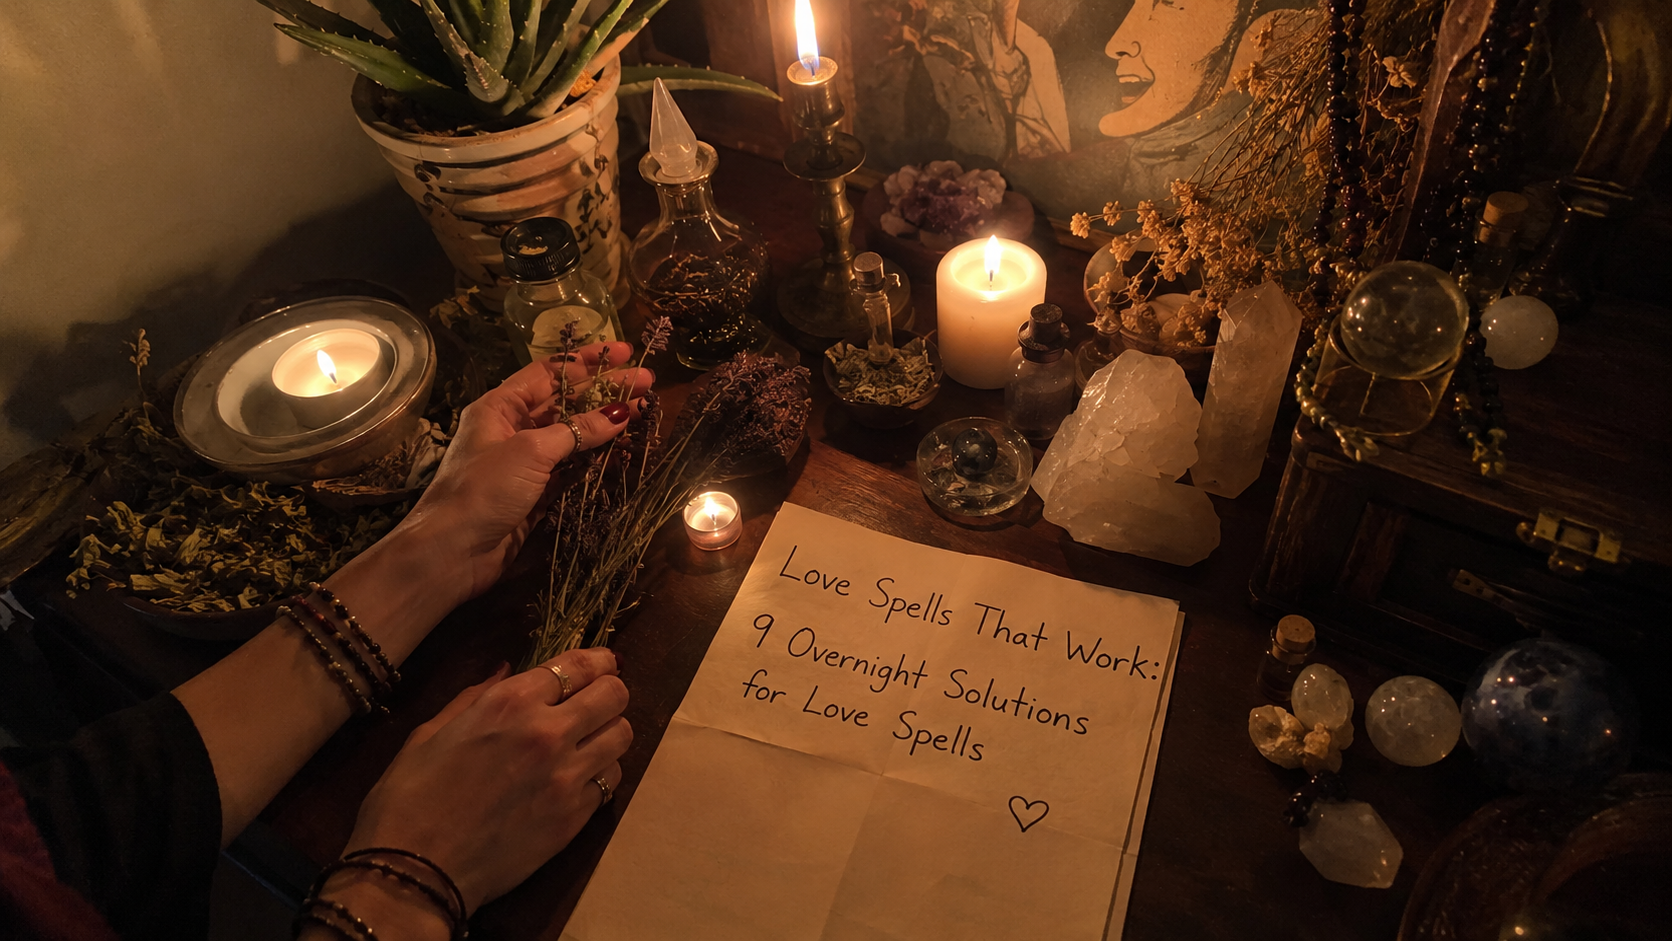 Love Spells That Work:
9 Overnight Solutions
for Love Spells